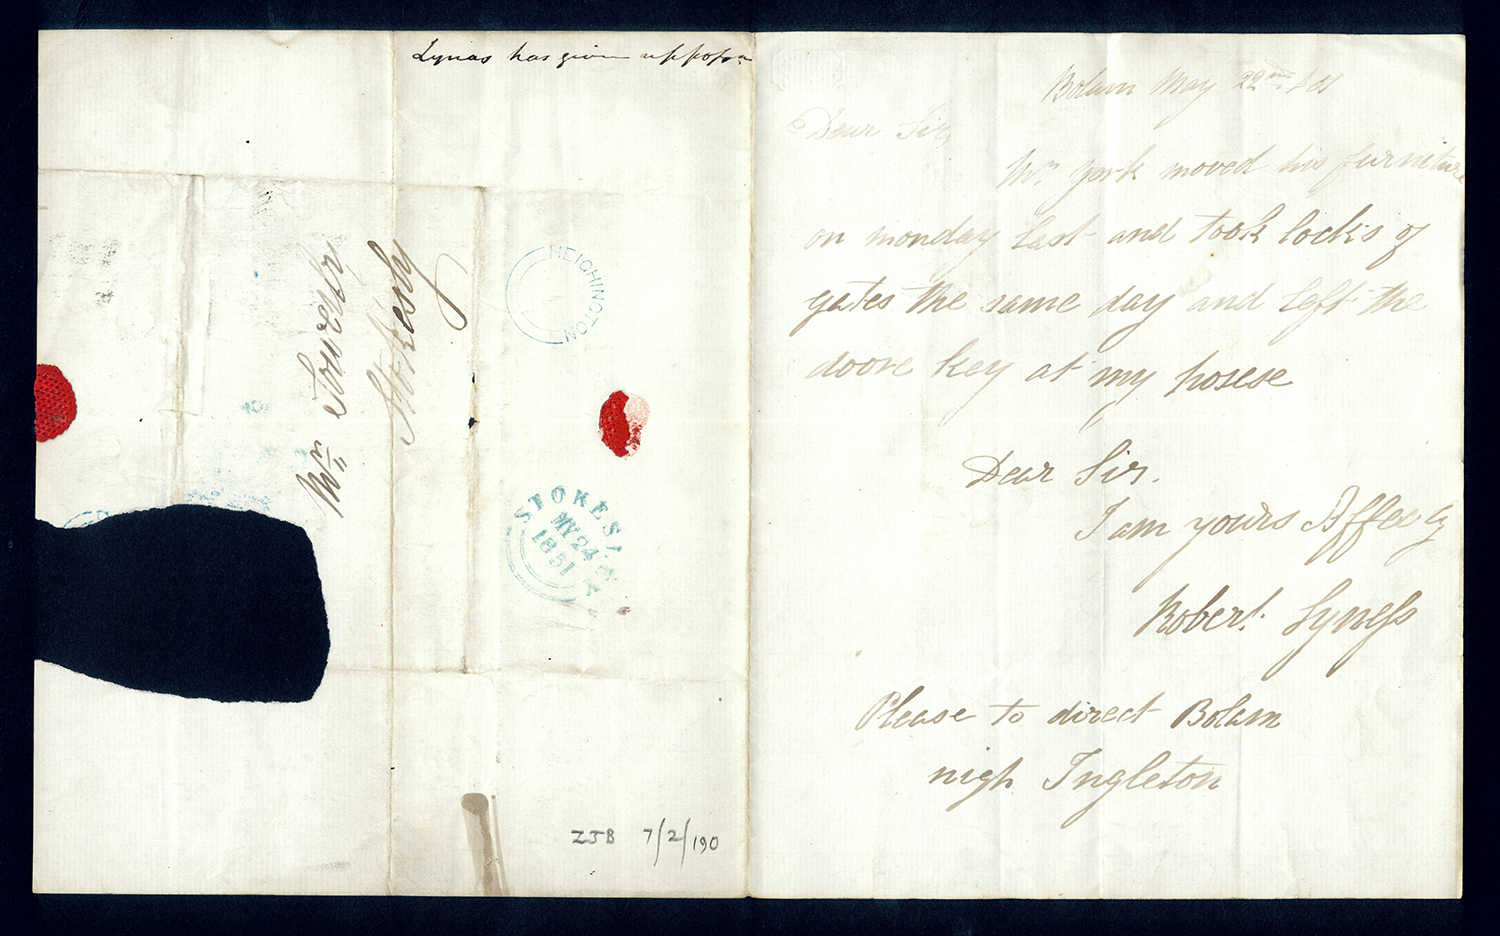 Lynas has given up posn
Mr. Sowerby
Stokesly
HEIGHINGTON
STOKESLEY
MY 24
1851
ZJB 7/2/190
Bolam May 22nd
Dear Sir,
Mr. York moved his furniture
on monday last and took locks of
gates the same day and left the
doore key at my hosese
Dear Sir.
I am yours Affecly
Robert Lyness
Please to direct Bolam
nigh Ingleton